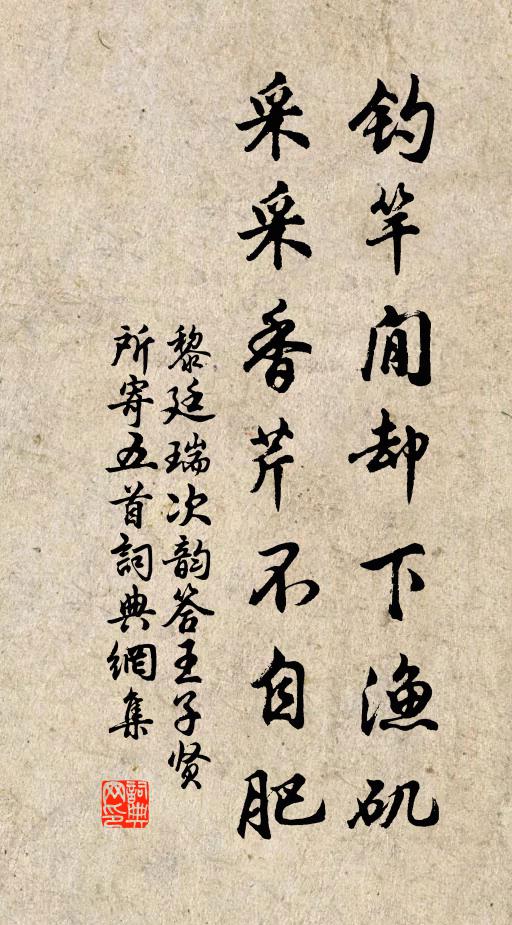 钓竿闲却下渔矶
采采香芹不自肥
黎廷瑞次韵答王子贤
所寄五首詞典網集
詞典网印